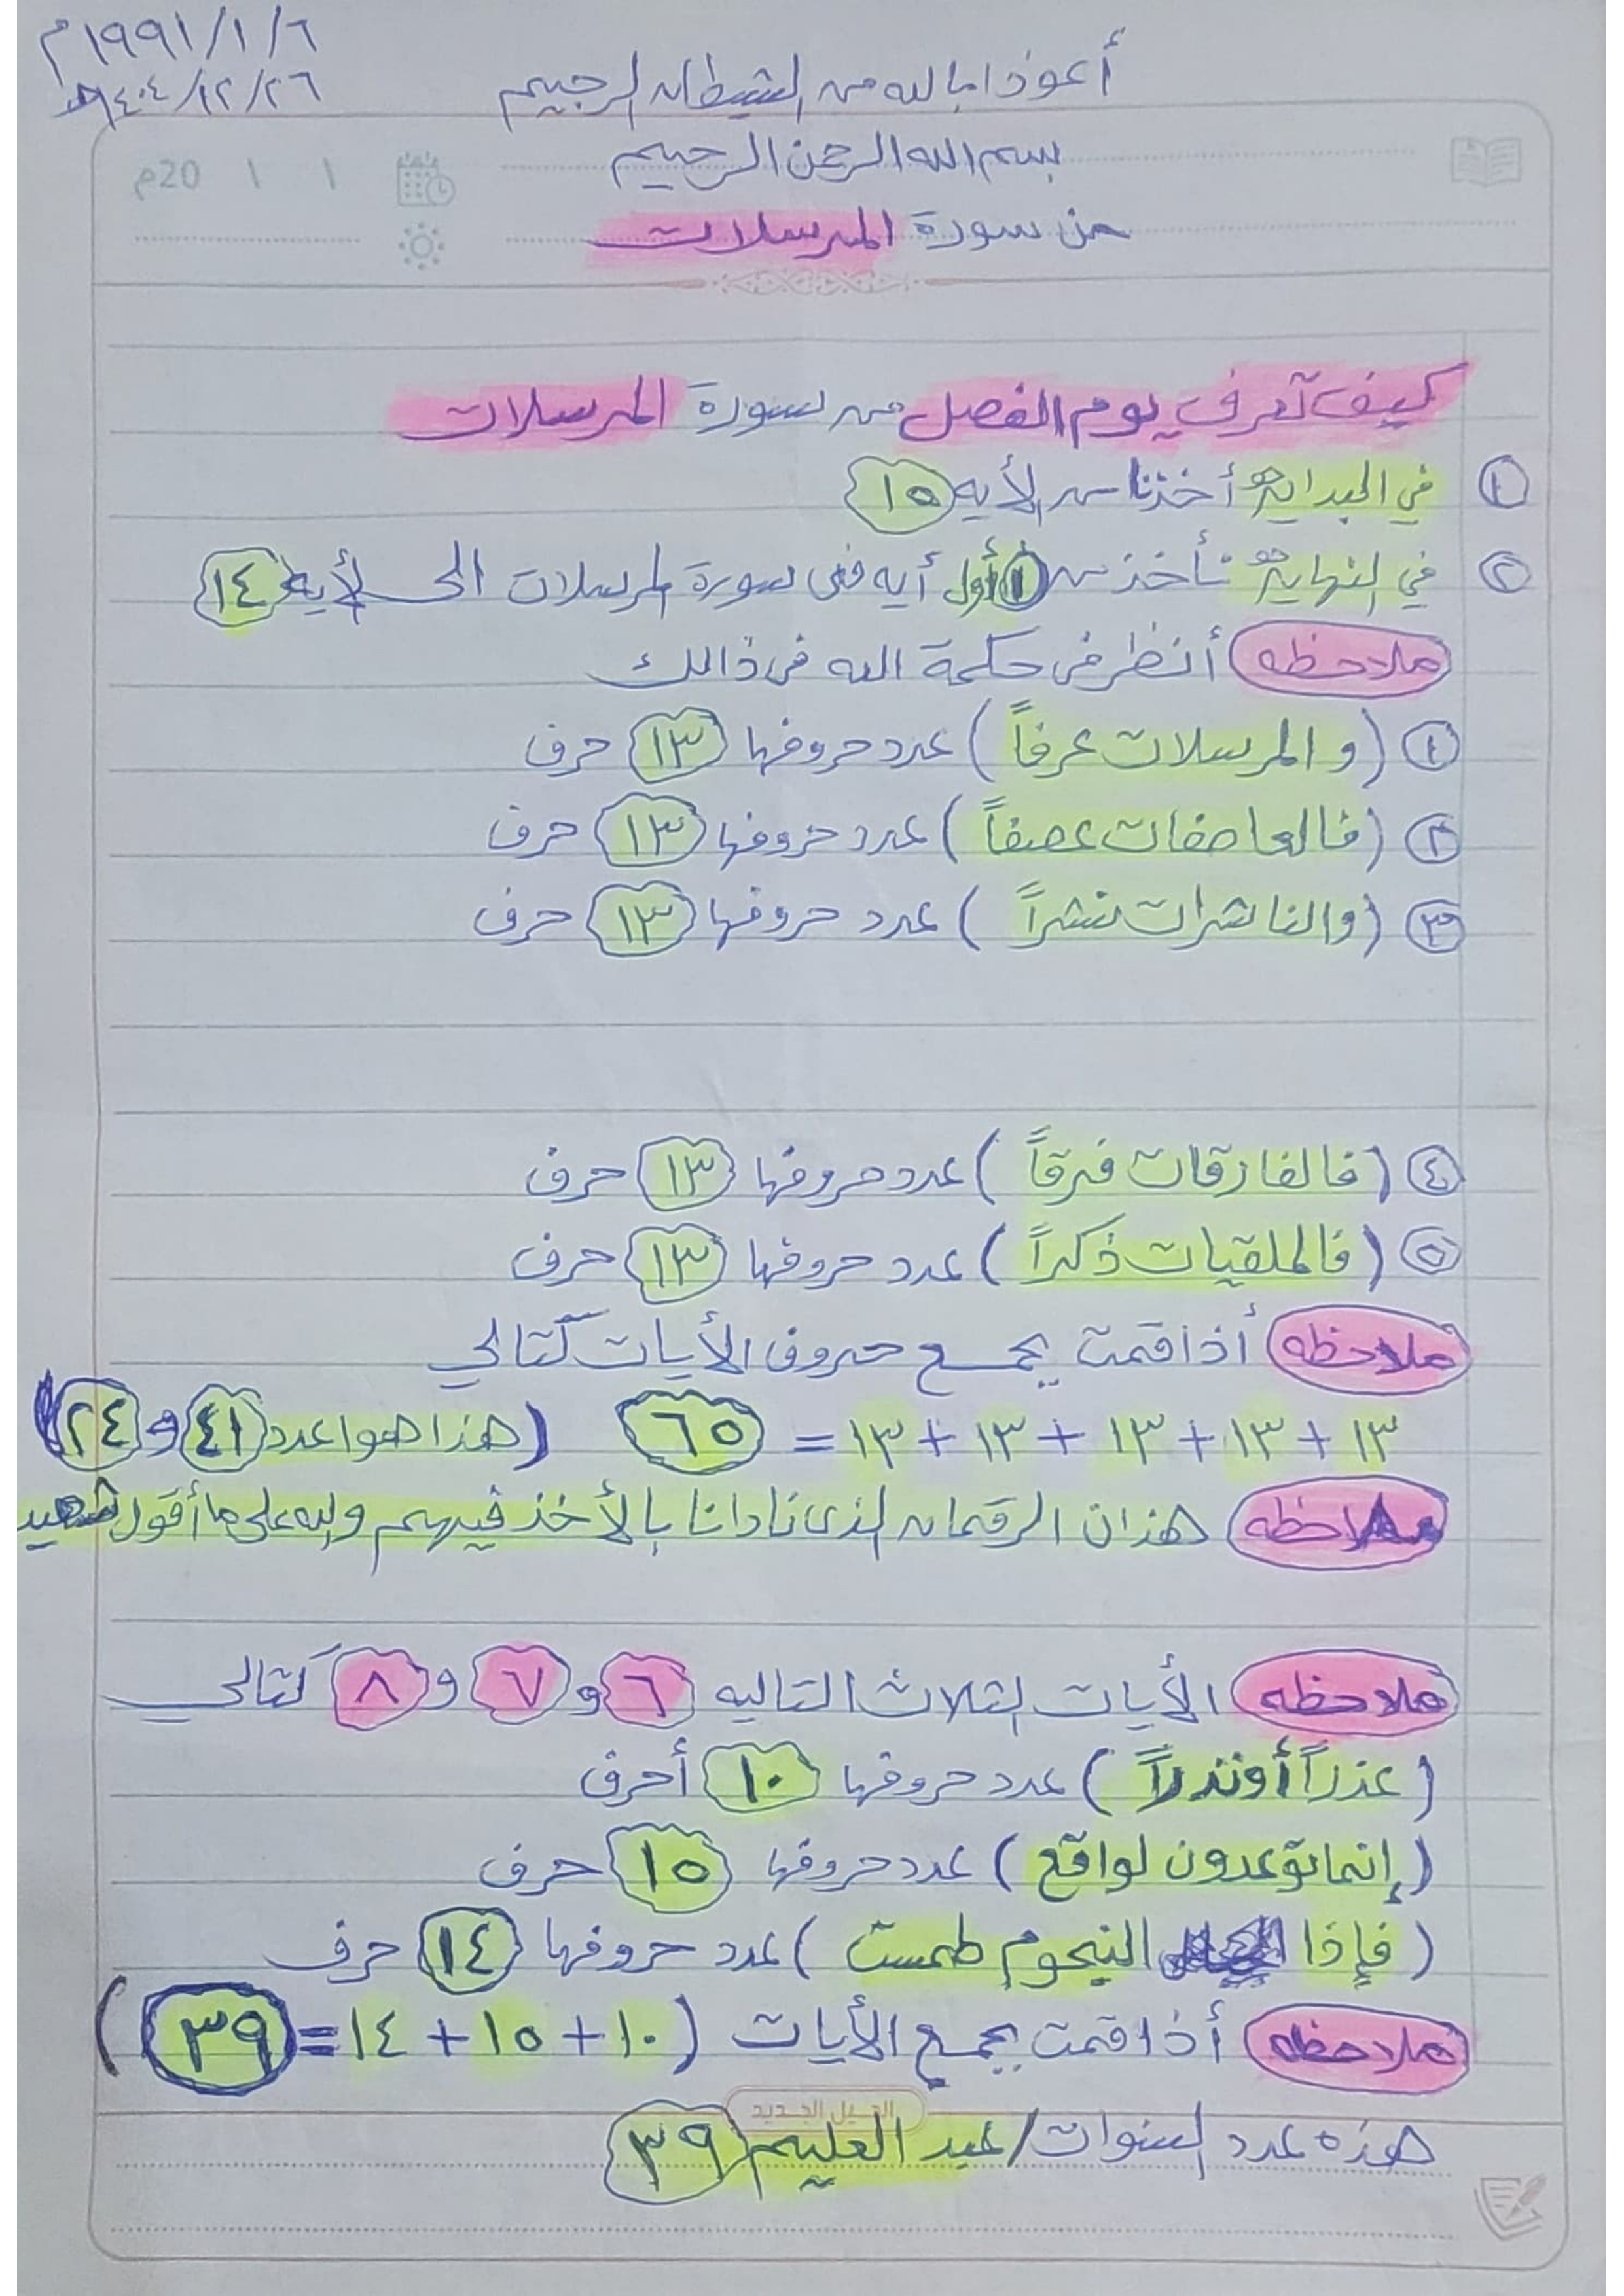 ١٩٩١/١/٦م
١٤٠٤/١٢/٢٦هـ
أعوذ ا بالله من الشيطان الرجيم
بسم الله الرحمن الرحيم
20م ١ ١
من سورة المرسلات
كيف تعرف يوم الفصل من سورة المرسلات
١ في البداية أخذنا من الأيه ١٥
٢ في النهاية نأخذ من ١ أول أيه في سورة المرسلات الى الأيه ١٤
ملاحظه أنظر في حكمة الله في ذالك
١ (والمرسلات عرفاً) عدد حروفها ١٣ حرف
٢ (فالعاصفات عصفاً) عدد حروفها ١٣ حرف
٣ (والناشرات نشراً) عدد حروفها ١٣ حرف
٤ (فالفارقات فرقاً) عدد حروفها ١٣ حرف
٥ (فالملقيات ذكراً) عدد حروفها ١٣ حرف
ملاحظه أذا قمت بجمع حروف الأيات كتالي
١٣ + ١٣ + ١٣ + ١٣ + ١٣ = ٦٥ (هذا هوا عدد ٤١ و ٢٤)
ملاحظه هذان الرقمان الذي نادانا بالأخذ فيهم والله على ما أقول شهيد
ملاحظه الأيات الثلاث التاليه ٦ و ٧ و ٨ كتالي
(عذراً أو نذراً) عدد حروفها ١٠ أحرف
(إنما توعدون لواقع) عدد حروفها ١٥ حرف
(فإذا النجوم طمست) عدد حروفها ١٤ حرف
ملاحظه أذا قمت بجمع الأيات (١٠ + ١٥ + ١٤ = ٣٩)
الجيل الجديد
هذه عدد السنوات / عبد العليم ٣٩